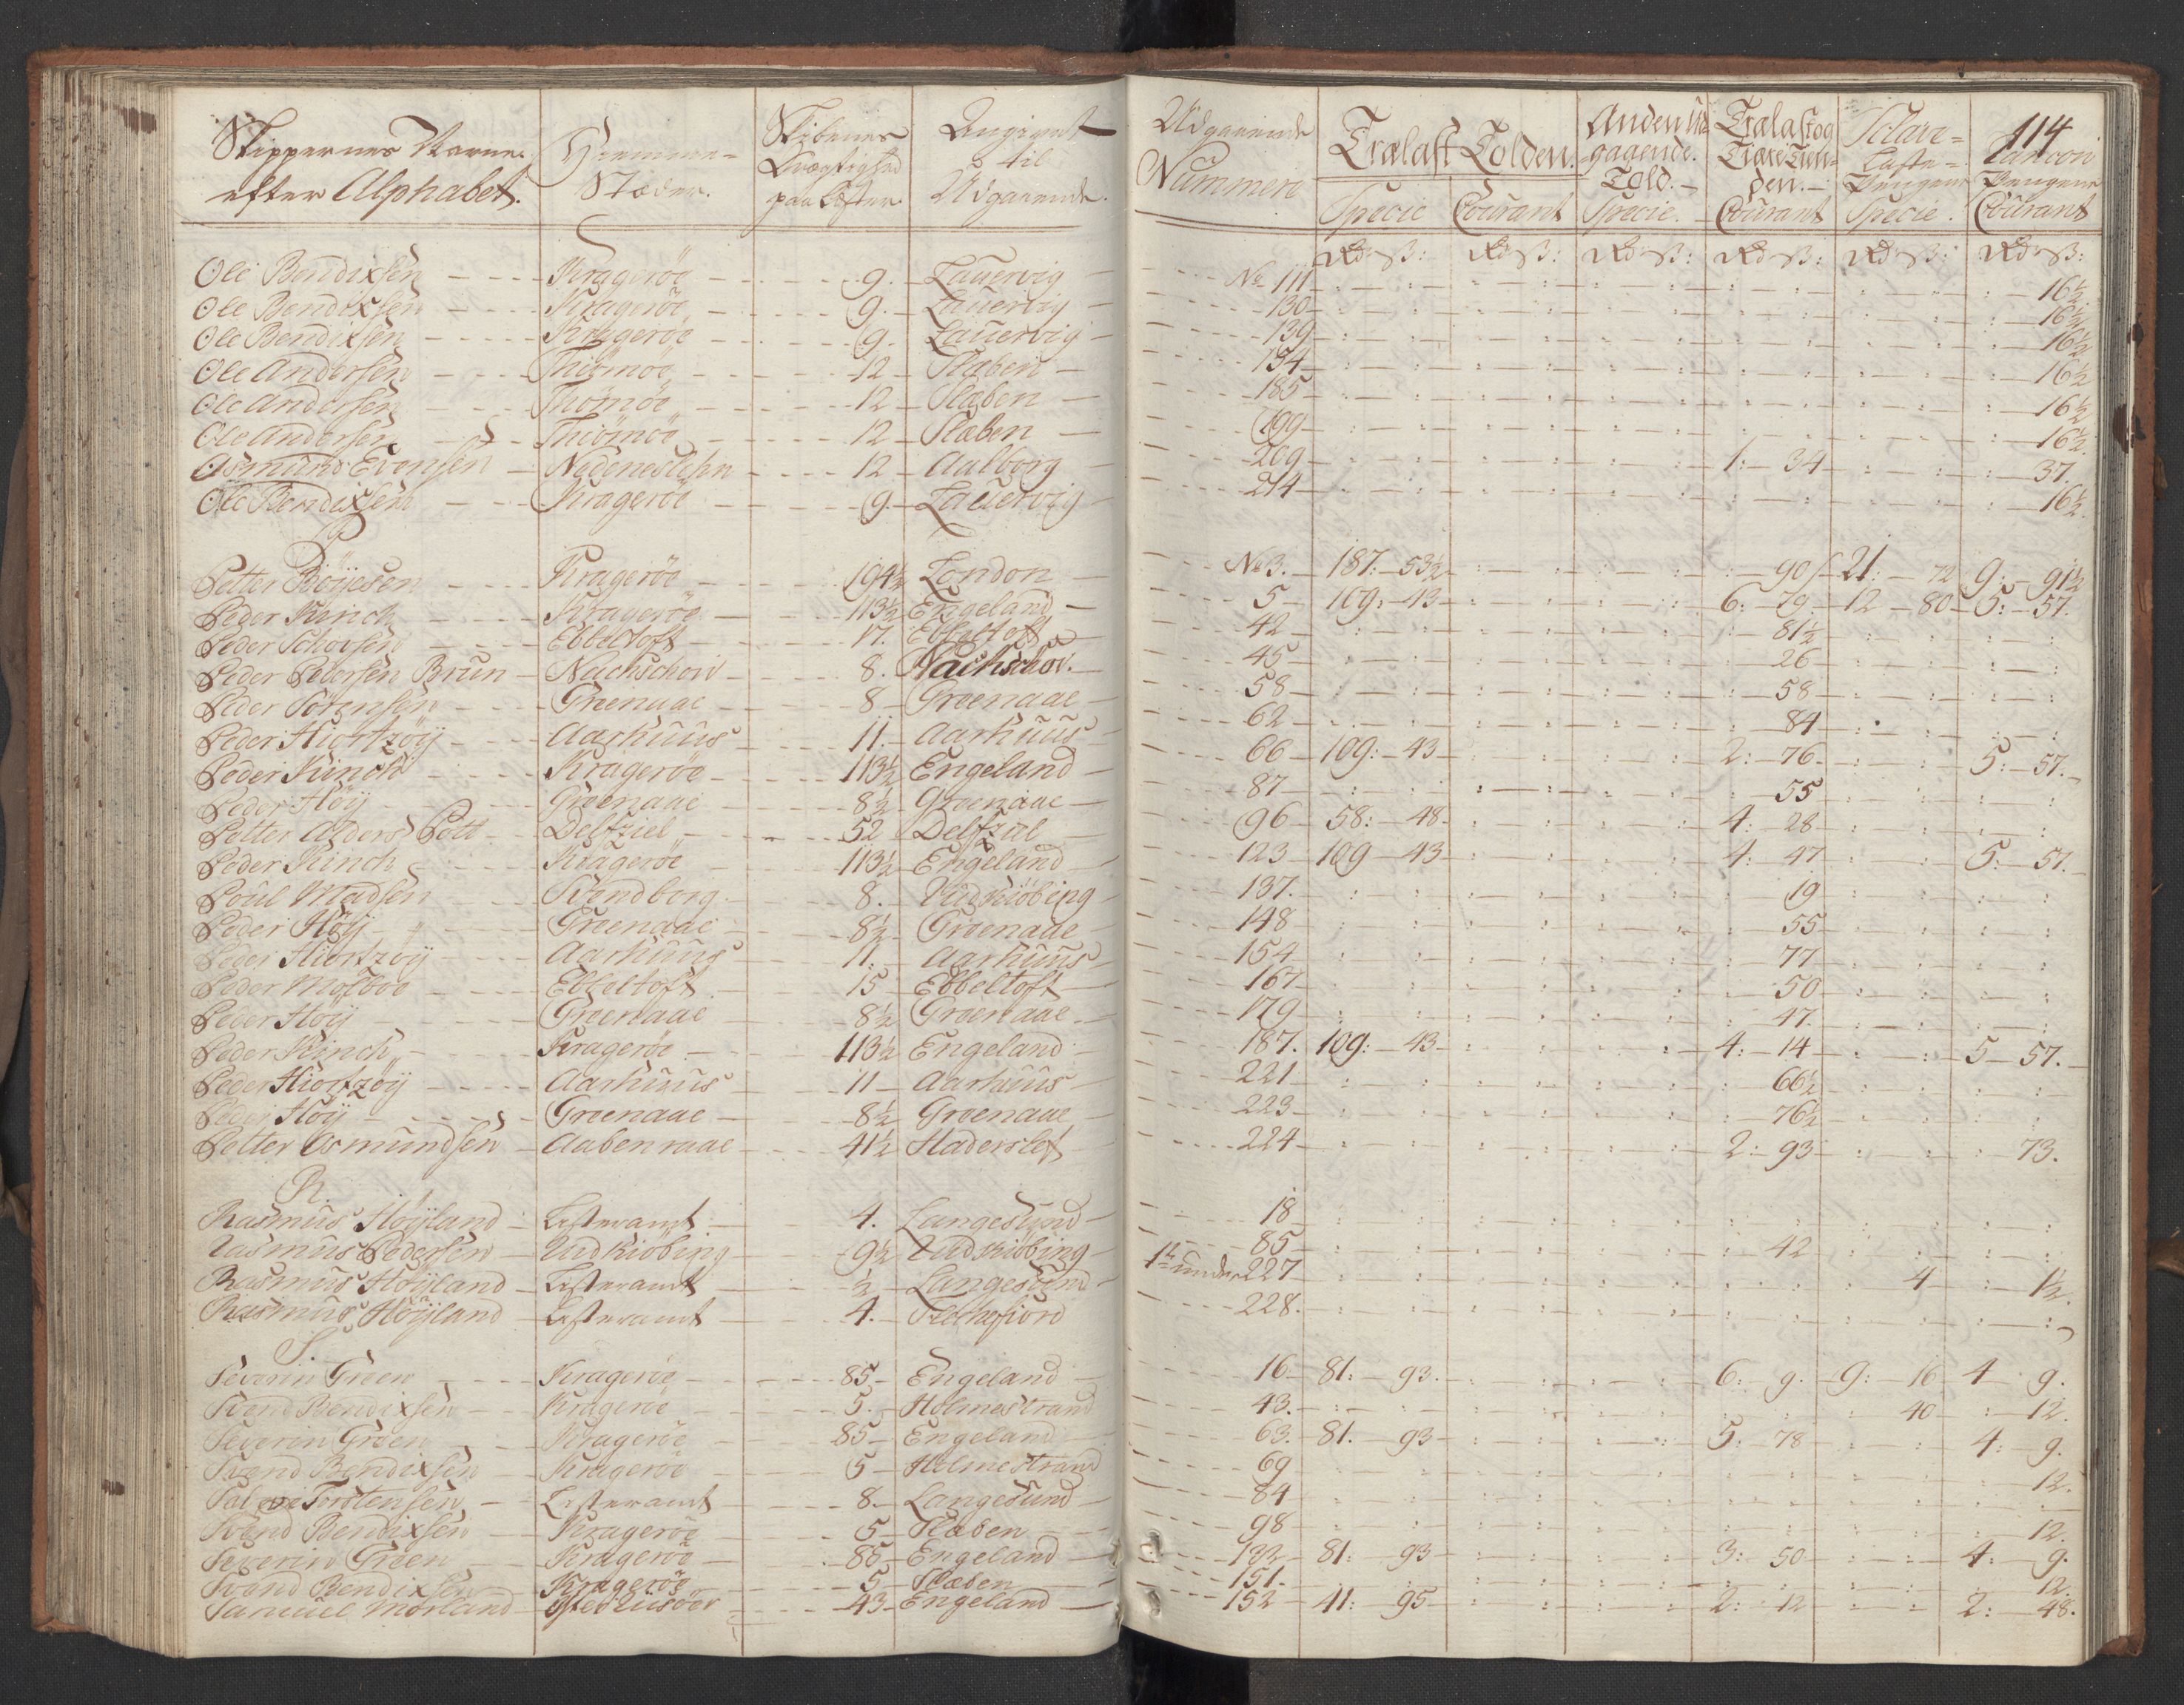 114
Skippernes Navne efter Alphabet.
Hiemme-Stæder.
Skibenes Drægtighed paa Læster
Angivet til Udgaaende.
Udgaaende Nummere
Trælast Tolden. Specie Courant
Anden Udgaaende Told. Specie.
Trælast og Tiære Tienden. Courant
Specie.
Pengene Courant
Ole Bendixsen Kragerøe 9. Lauervig No 111 16½
Ole Bendixsen Kragerøe 9. Lauervig 130 16½
Ole Bendixsen Kragerøe 9. Lauervig 139 16½
Ole Andersen Thiømøe 12 Staben 154 16½
Ole Andersen Thiømøe 12 Staben 185 16½
Ole Andersen Thiømøe 12 Staben 199 16½
Asmund Evensen Nedeneslehn 12 Aalborg 209 1: 34 37.
Ole Bendixsen Kragerøe 9. Lauervig 214 16½
P
Petter Börjesen Kragerøe 194½ London No 3. 187: 53½ 90 21: 72 9: 91½
Peder Kinch Kragerøe 113½ Engeland 5 109: 43 6: 79. 12 80 5: 57.
Peder Schovsen Ebbeltoft 17. Ebbeltoft 42 81½
Peder Petersen Brun Nachschow 8. Nachschov. 45 26
Peder Sörensen Greenaae 8 Greenaae 58 58
Peder Hiortzøy Aarhuus 11. Aarhuus 62 84
Peder Kinch Kragerøe 113½ Engeland 66 109: 43 2: 76 5: 57.
Peder Høy Greenaae 8½ Greenaae 87 55
Petter Alders Pott Delfziel 52 Delfziel 96 58: 48. 4: 28
Peder Kinch Kragerøe 113½ Engeland 123 109 43 4: 47 5: 57.
Poul Madsen Svendborg 8. Rudkiöbing 137. 19
Peder Høy Greenaae 8½ Greenaae 148 55
Peder Hiortzøy Aarhuus 11. Aarhuus 154 77
Peder Molboe Ebbeltoft 15 Ebbeltoft 167 50
Peder Høy Greenaae 8½ Greenaae 179 47.
Peder Kinch Kragerøe 113½ Engeland 187. 109: 43 4: 14 5 57.
Peder Hiortzøy Aarhuus 11 Aarhuus 221 66½
Peder Høy Greenaae 8½ Greenaae 223 76½
Petter Asmundsen Aabenraae 41½ Haderslef 224 2: 93 73.
R.
Rasmus Høyland Listeramt 4. Langesund 18
Rasmus Pedersen Rudkiöbing 9½ Rudkiöbing 85 42
Rasmus Høyland Listeramt ½ Langesund under 227 4 1½.
Rasmus Høyland Listeramt 4. Flechefiord 228.
S.
Severin Green Kragerøe 85 Engeland 16 81: 93. 6: 9. 9: 16 4 9.
Svend Bendixsen Kragerøe 5. Holmestrand 43. 40 12.
Severin Green Kragerøe 85 Engeland 63. 81. 93 5: 78 4: 9.
Svend Bendixsen Kragerøe 5 Holmestrand 69 12.
Torstensen Listeramt 8. Langesund 84
Svend Bendixsen Kragerøe 5 Staben 98 12.
Severin Green Kragerøe 85 Engeland 132 81: 93 3: 50 4: 9.
Svend Bendixsen Kragerøe 5 Stæben 151. 12.
Samuel Mörland Øster Riisøer 43 Engeland 152 41: 95 2: 12 2: 48.